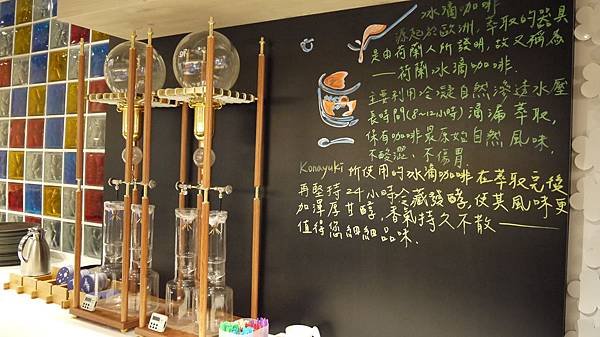 冰滴咖啡
源起於歐洲,萃取的器具
是由荷蘭人所發明,故又稱為
——荷蘭冰滴咖啡.
主要利用冷凝自然滲透水壓
長時間(8~12小時)滴漏萃取,
保有咖啡最原始自然風味.
不酸澀、不傷胃.
Konayuki 所使用的冰滴咖啡在萃取完後
再堅持24小時冷藏發酵,使其風味更
加渾厚甘醇,香氣持久不散——
值得您細細品味.